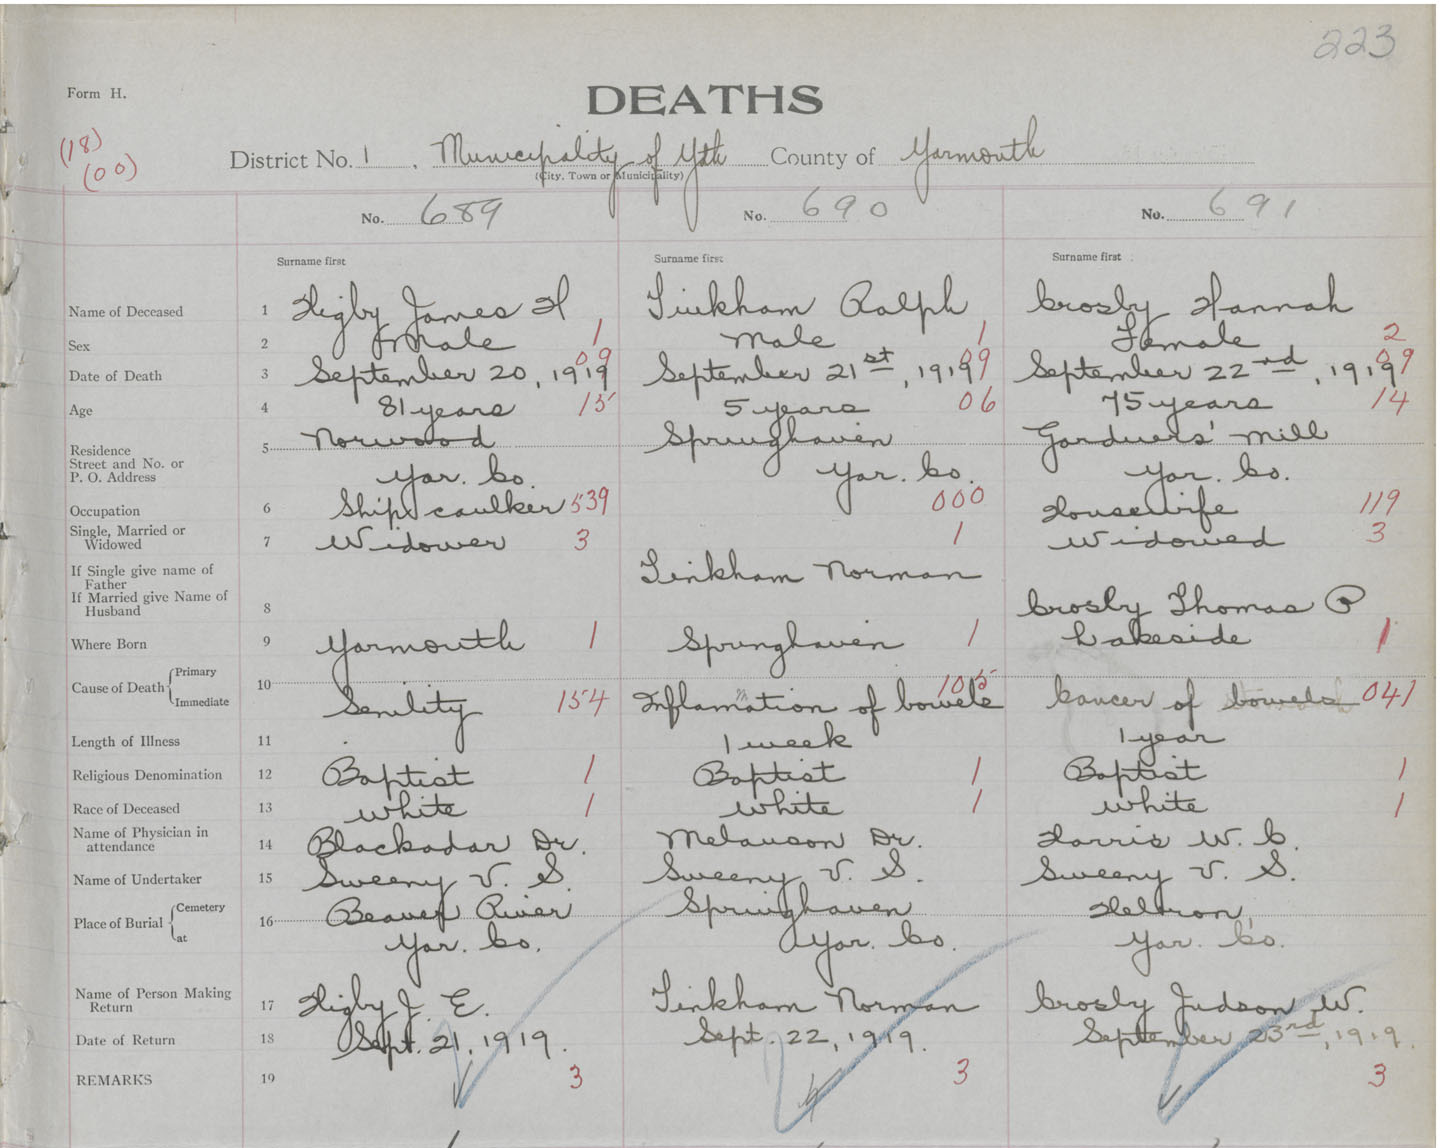 223
Form H.
DEATHS
(18)
(00)
District No. 1, Municipality of Yth County of Yarmouth
(City, Town or Municipality)
No. 689 No. 690 No. 691
Surname first Surname first Surname first
Name of Deceased 1 Higby James H Tinkham Ralph Crosby Hannah
Sex 2 Male 1 Male 1 Female 2
Date of Death 3 September 20, 1919 09 September 21st, 1919 09 September 22nd, 1919 09
Age 4 81 years 15 5 years 06 75 years 14
Residence
Street and No. or
P. O. Address
5 Norwood Springhaven Gardners' Mill
Yar. Co. Yar. Co. Yar. Co.
Occupation 6 Ship caulker 539 000 Housewife 119
Single, Married or
Widowed 7 Widower 3 1 Widowed 3
If Single give name of
Father Tinkham Norman
If Married give Name of
Husband 8 Crosby Thomas P
Where Born 9 Yarmouth 1 Springhaven 1 Lakeside 1
Cause of Death Primary 10
Immediate Senility 154 Inflamation m of bowels 105 Cancer of bowels 041
Length of Illness 11 1 week 1 year
Religious Denomination 12 Baptist 1 Baptist 1 Baptist 1
Race of Deceased 13 White 1 White 1 White 1
Name of Physician in
attendance 14 Blackadar Dr. Melanson Dr. Harris W. C.
Name of Undertaker 15 Sweeny V. S. Sweeny V. S. Sweeny V. S.
Place of Burial Cemetery 16 Beaver River Springhaven Hebron,
at Yar. Co. Yar. Co. Yar. Co.
Name of Person Making
Return 17 Higby J. E. Tinkham Norman Crosby Judson W.
Date of Return 18 Sept. 21, 1919. Sept. 22, 1919. September 23rd, 1919.
REMARKS 19 3 3 3